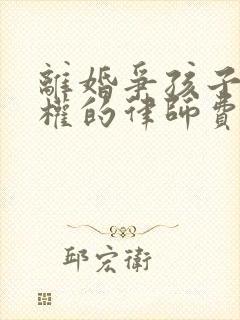 離婚爭孩子
權的律師費
邱宏衛